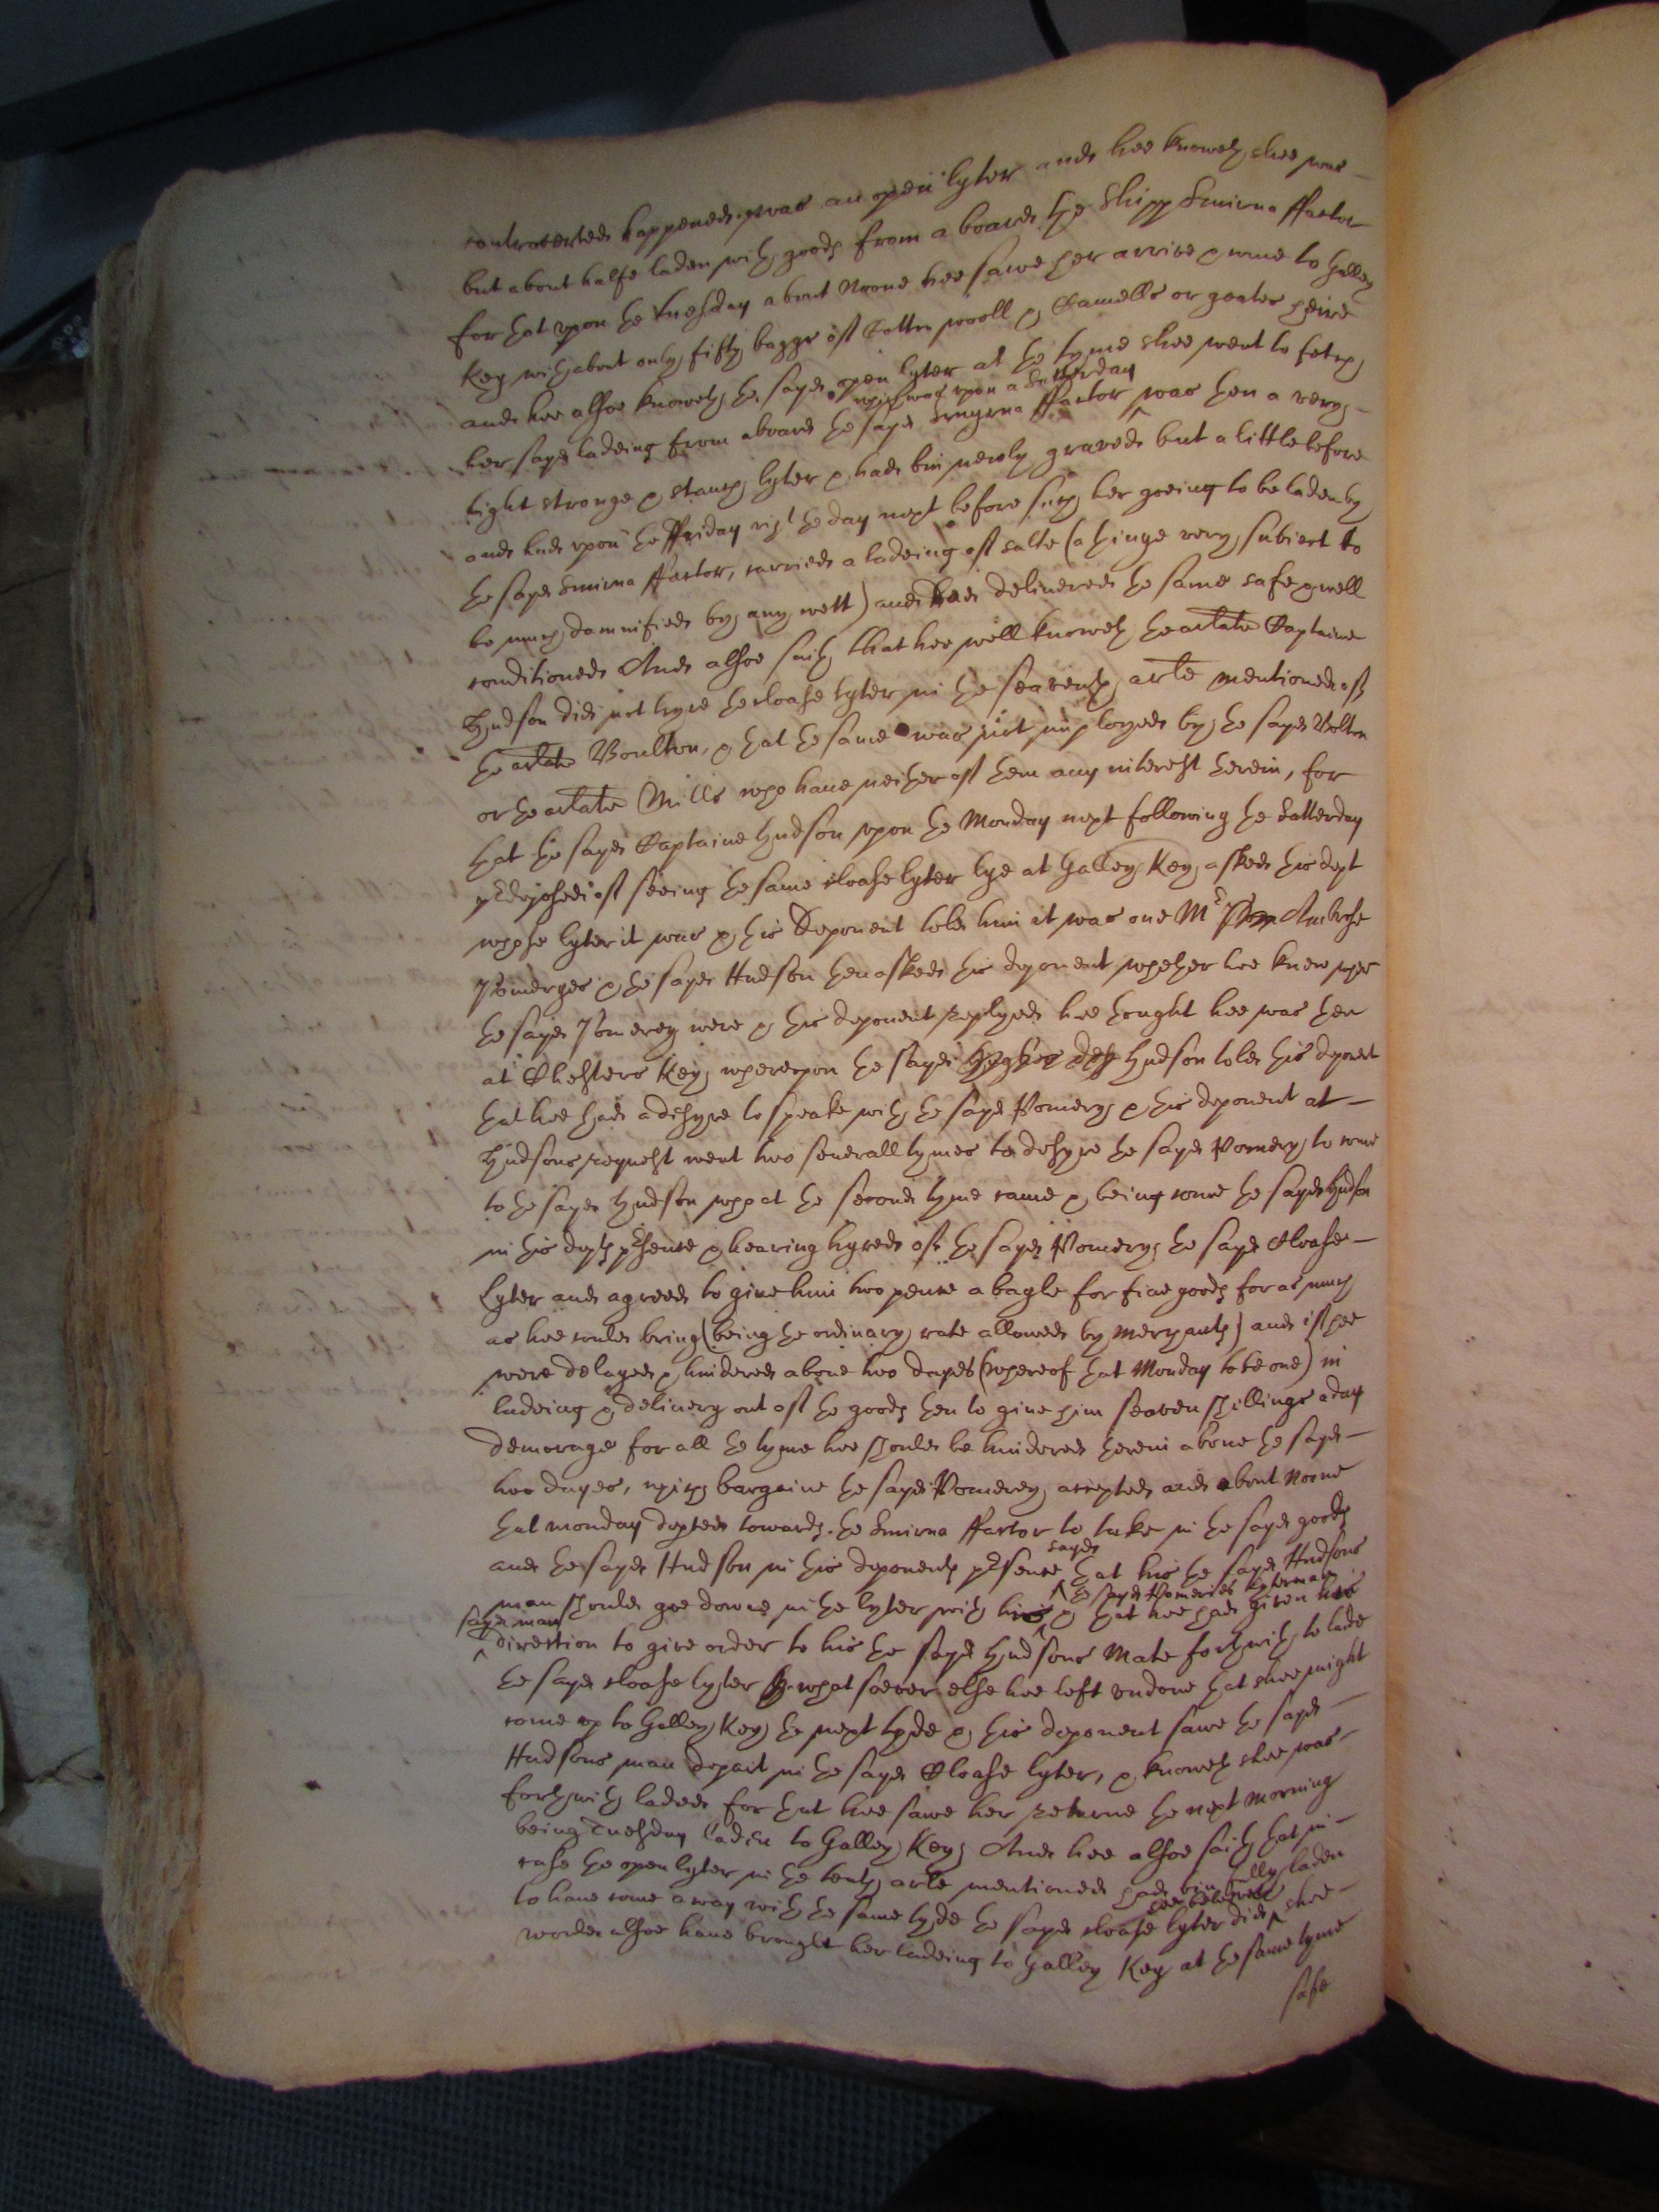 controverted happened, was an open lyter and hee knoweth shee was
but about halfe laden with goods from aboard the Shipp Smirna ffactor
for that upon the tuesday about Noone hee sawe her arrive & come to Galley
Key with about only fifty baggs of Cotton wooll & Camells or goates heire
and hee alsoe knoweth the sayd open lyter at the tyme shee went to fetch
her sayd ladeing from aboard the sayd Smyrna ffactor which was upon a Satterday was then a very
tight stronge & stanch lyter & had bin newly graved but a little before
and had upon the ffriday the day next before such her goeing to be laden by
the sayd Smirna ffactor, carried a ladeing of salte (a thinge very subiect to
be much damnified by any wett) and had delivered the same safe & well
conditioned And alsoe saith that hee well knoweth the arlate Captaine
Hudson did not hyre the cloase lyter in the seaventh arte mentioned of
the arlate Boulton, & that the same was not imployed by the sayd Bolton
or the arlate Mills who have neither of them any interest therein, for
that the sayd Captaine Hudson upon the Monday next following the Satterday
predeposed of seeing the same cloase lyter lye at Galley Key asked this dept
whose lyter it was & this Deponent told him it was one Mr Ambrose
Pomeryes & the sayd Hudson then asked this deponent whether hee knew wher
the sayd Pomerey were & this deponent replyed hee thought hee was then
at Chesters Key, whereupon the sayd Hudson told this deponent
that hee had a desyre to speake with the sayd Pomery & this deponent at
Hudsons request went two severall tymes to desyre the sayd Pomery to come
to the sayd Hudson who at the second tyme came & being come the sayd Hudson
in this depts presence & hearing hyred of the sayd Pomery the sayd Cloase
Lyter and agreed to give him two pence a bagle for fine goods for as much
as hee could bring (being the ordinary rate allowed by merchants) and if hee
were delayed & hindered above two dayes (whereof that Monday to be one) in
ladeing & delivery out of the goods then to give him seaven shillings a day
demorage for all the tyme hee should be hindered therein above the sayd
two dayes, which bargaine the sayd Pomerey accepted and about Noone
that monday depted towards the Smirna ffactor to take in the sayd goods
and the sayd Hudson in this deponents presence sayd that his the sayd Hudsons
man should goe downe in the lyter with the sayd Pomeries lyterman & that hee had given his
sayd man direction to give order to his the sayd Hudsons Mate forthwith to lade
the sayd cloase lyter whatsoever else hee left undone that shee might
come up to Galley Key the next tyde & this deponent sawe the sayd
Hudsons man depart in the sayd Cloase lyter, & knoweth shee was
forthwith laded for that hee sawe her returne the next morning
being Tuesday laden to Galley Key And hee alsoe saith that in
case the open lyter in the tenth arte mentioned had bin fully laden
to have come away with the same tyde the sayd cloase lyter did hee beleeveth shee
would alsoe have brought her ladeing to Galley Key at the same tyme
safe